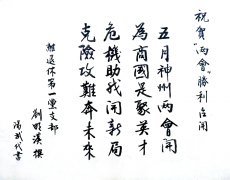 祝賀"両會"勝利召開
五月神州両會開
為商國是聚英才
危機助我開新局
克險攻難奔未來
離退休第一黨支部
劉明漢 撰
湯斌代書